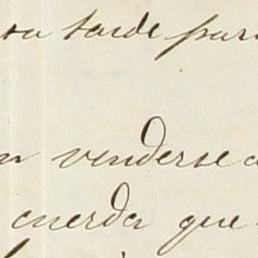 tarde par
venderse a
cuerda que